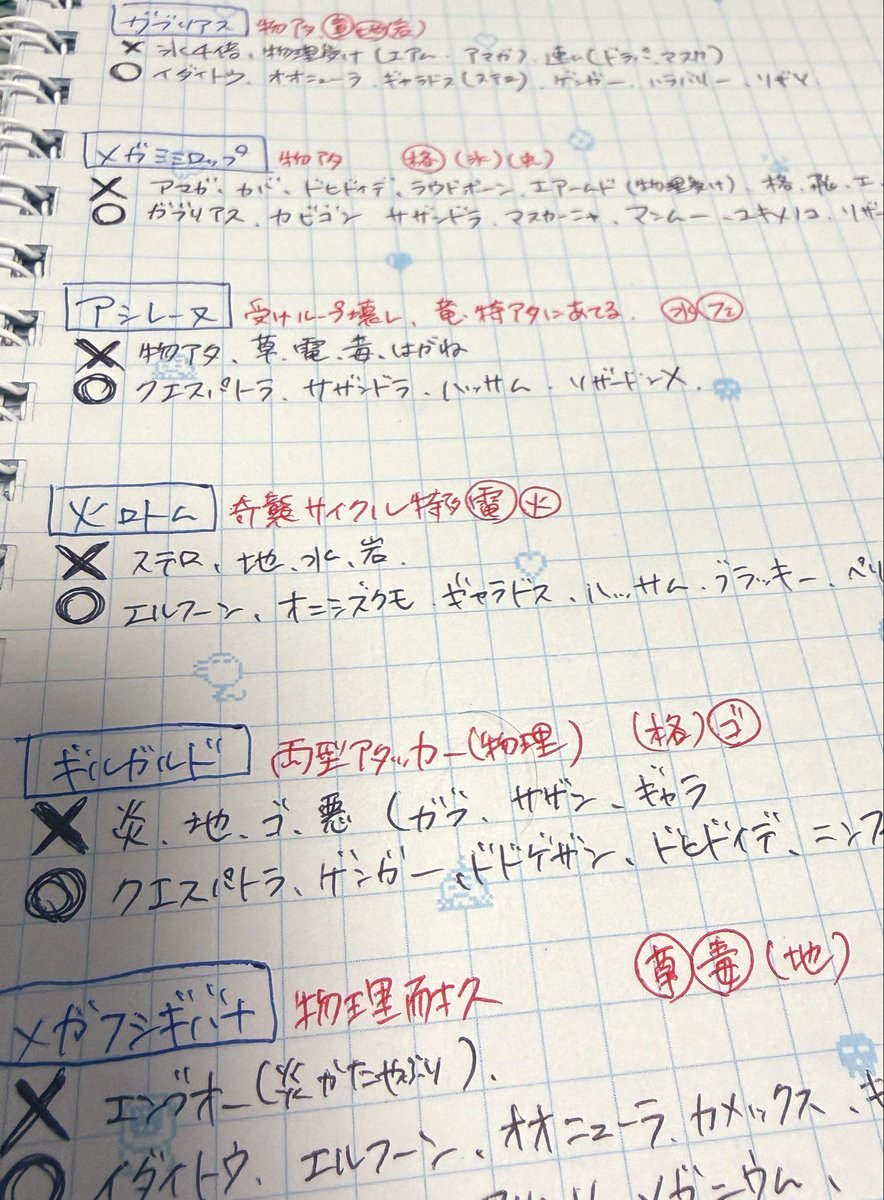 ガブリアス 物アタ 竜 地 (岩)
× 氷4倍、物理受け(エアム、アマガ)、速い(ドラパ、マスカ)
○ イダイトウ、オオニューラ、ギャラドス(ステロ)、ゲンガー、ハラバリー、リザY
メガミミロップ 物アタ 格 (氷)(虫)
× アマガ、カバ、ドヒドイデ、ラウドボーン、エアームド(物理受け)、格、飛、エ
○ ガブリアス、カビゴン サザンドラ、マスカーニャ、マンムー、ユキメノコ、リザー
アシレーヌ 受けループ壊し、竜、特アタにあてる。 水 フェ
× 物アタ、草、電、毒、はがね
○ クエスパトラ、サザンドラ、ハッサム、リザードンX.
火ロトム 奇襲サイクル特殊 電 火
× ステロ、地、水、岩.
○ エルフーン、オニシズクモ、ギャラドス、ハッサム、ブラッキー、ペリ
ギルガルド 両型アタッカー(物理) (格) ゴ
× 炎、地、ゴ、悪(ガブ、サザン、ギャラ
○ クエスパトラ、ゲンガー、ドドゲザン、ドヒドイデ、ニンフ
メガフシギバナ 物理耐久 草 毒 (地)
× エンブオー(炎かたやぶり).
○ イダイトウ、エルフーン、オオニューラ、カメックス、ギ
ソガニウム、